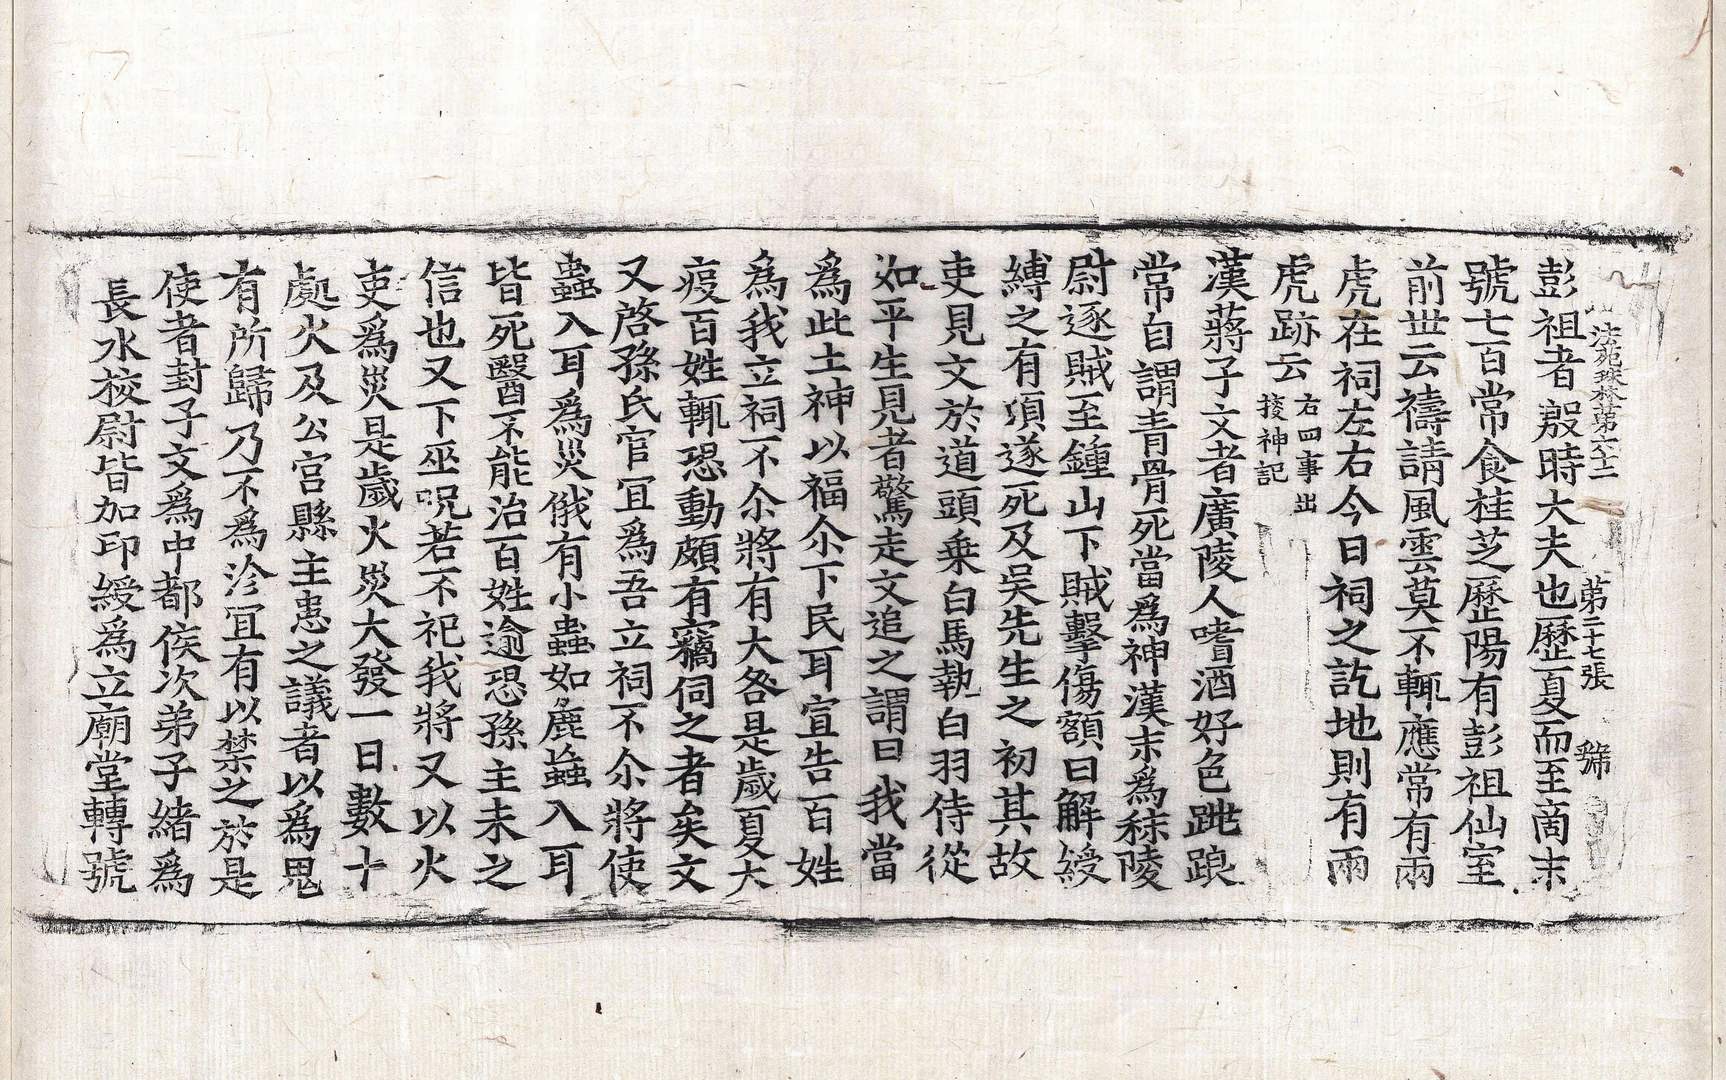 法苑珠林第六十二 第二十七張 號
彭祖者殷時大夫也歷夏而至商末
號七百常食桂芝歷陽有彭祖仙室
前世云禱請風雲莫不輒應常有兩
虎在祠左右今日祠之訖地則有兩
虎跡云右四事出
搜神記
漢蔣子文者廣陵人嗜酒好色跳踉
常自謂青骨死當為神漢末為秣陵
尉逐賊至鍾山下賊擊傷額因解綬
縛之有須遂死及吳先生之初其故
吏見文於道頭乗白馬執白羽侍從
如平生見者驚走文追之謂曰我當
為此土神以福尒下民耳宣告百姓
為我立祠不尒將有大咎是歲夏大
疫百姓輒恐動頗有竊伺之者矣文
又啓孫氏官冝為吾立祠不尒將使
蟲入耳為災俄有小蟲如麁䗽入耳
皆死醫不能治百姓逾恐孫主未之
信也又下巫呪若不祀我將又以火
吏為災是歲火災大發一日數十
處火及公宫縣主患之議者以為鬼
有所歸乃不為沴冝有以禁之於是
使者封子文為中都侯次弟子緒為
長水校尉皆加印綬為立廟堂轉號